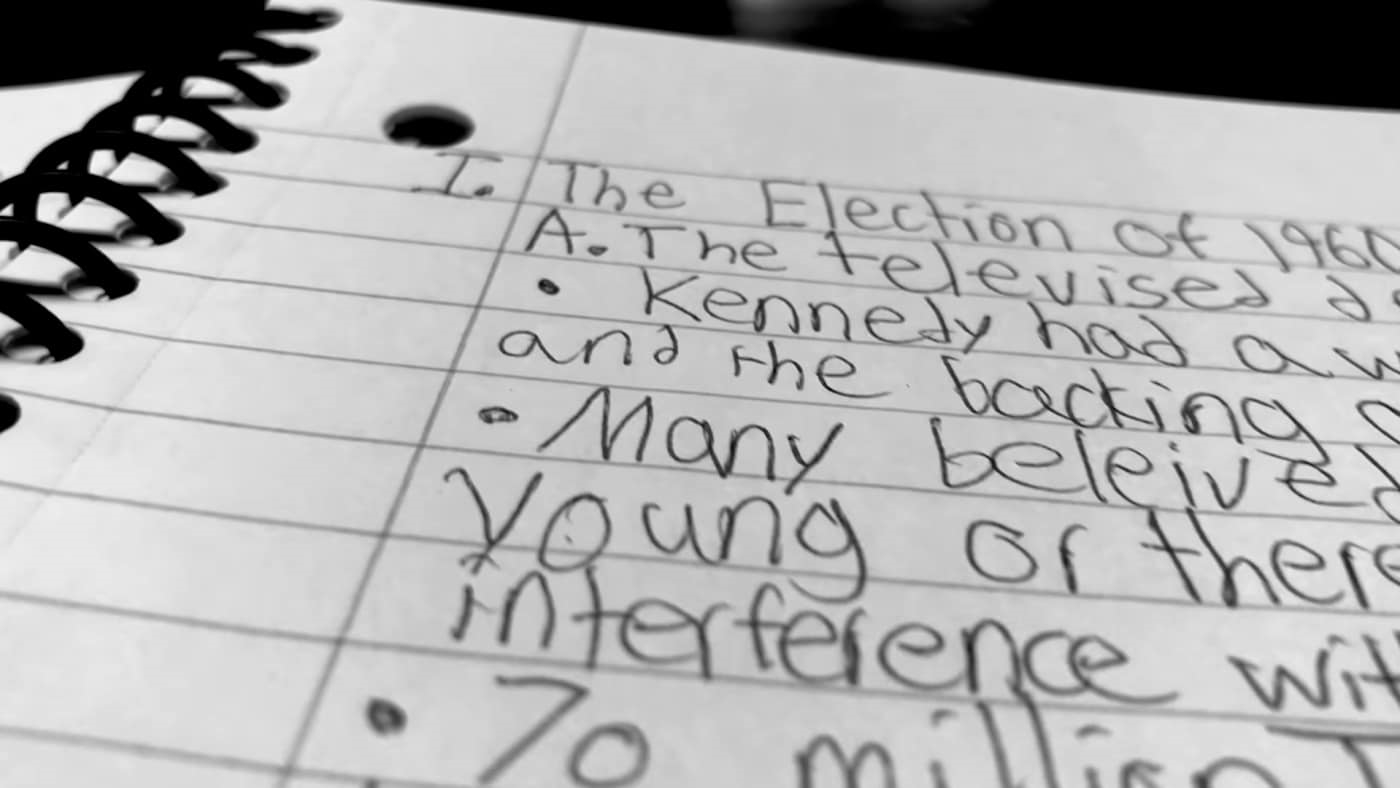 I. The Election of 1960
A. The televised
• Kennedy had a
and the backing
• Many beleived
young or there
interference
• 70 million